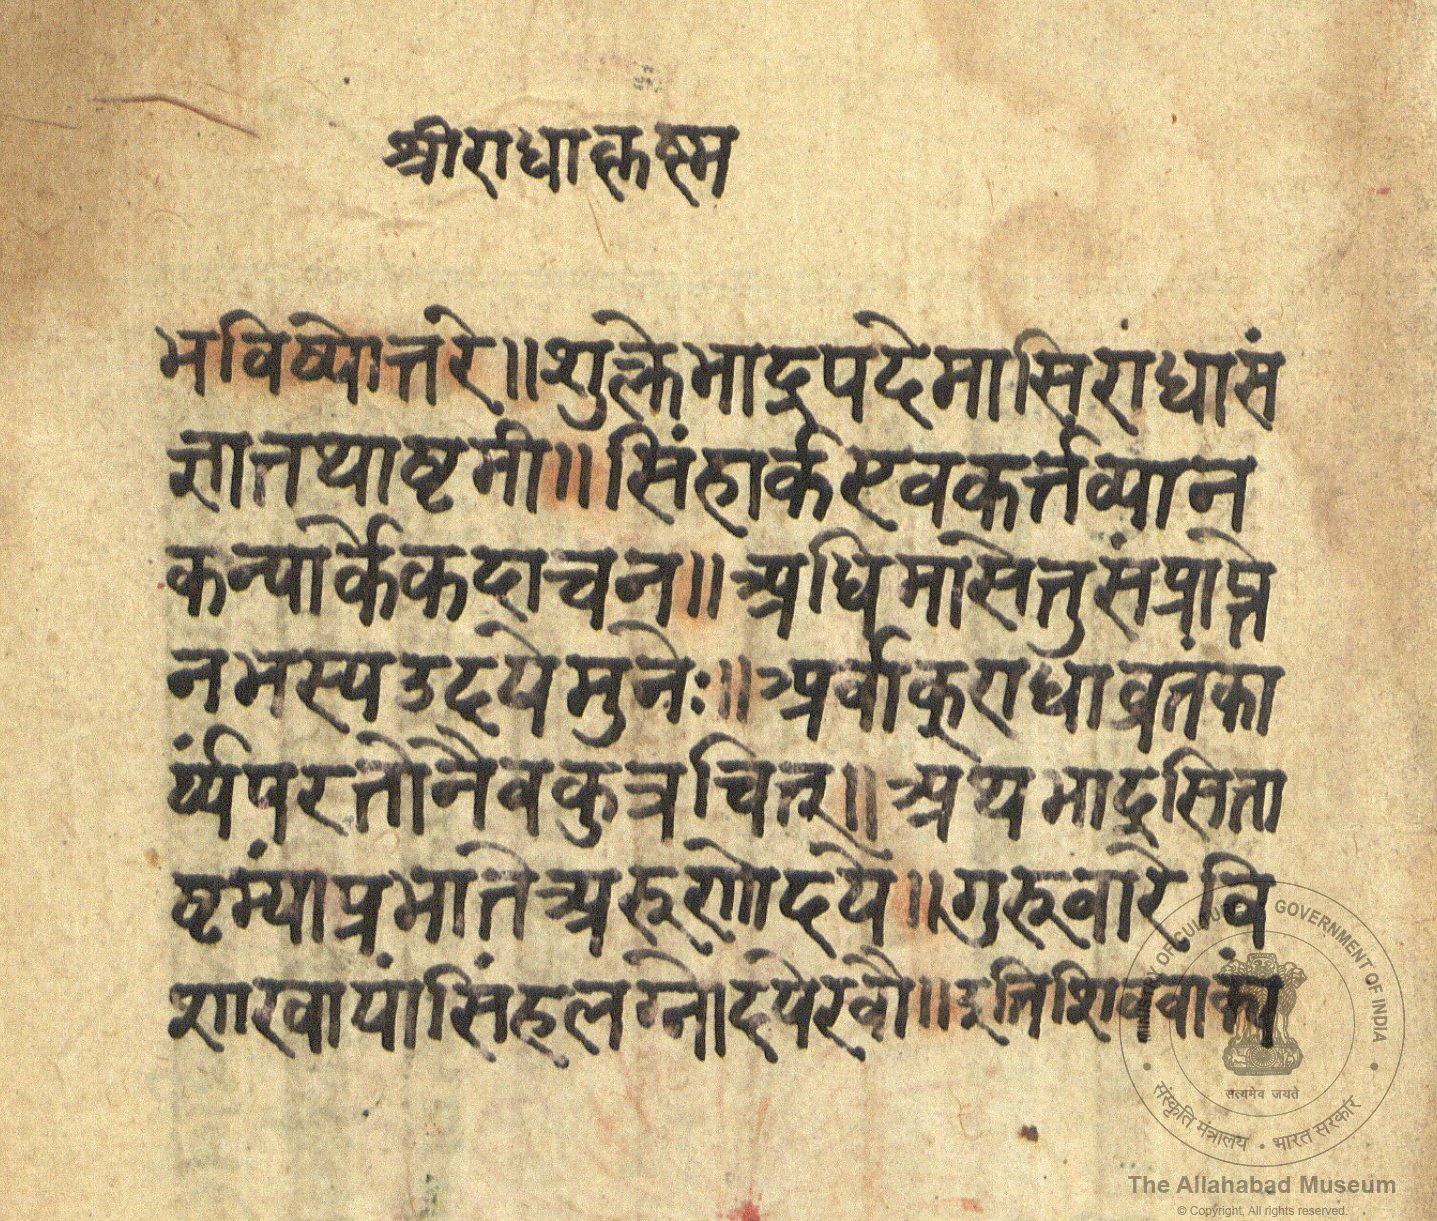 श्रीराधाकृष्न
भविष्योत्तरे॥शुक्लेभाद्रपदेमासिराधासं
ज्ञातथाष्टमी॥सिंहार्कएवकर्त्तव्यान
कन्यार्केकदाचन॥अधिमासेतुसंप्राप्ते
नभस्यउदयेमुनेः॥अर्वाकुराधाव्रतंका
र्य्यंपरतोनैवकुत्रचित्॥अथभाद्रसिता
ष्टम्यांप्रभातेअरुणोदये॥गुरुवारेवि
शाखायांसिंहलग्नोदयेरवौ॥इतिशिववाक्यं
MINISTRY OF CULTURE GOVERNMENT OF INDIA
सत्यमेव जयते
संस्कृति मंत्रालय • भारत सरकार
The Allahabad Museum
© Copyright, All rights reserved.